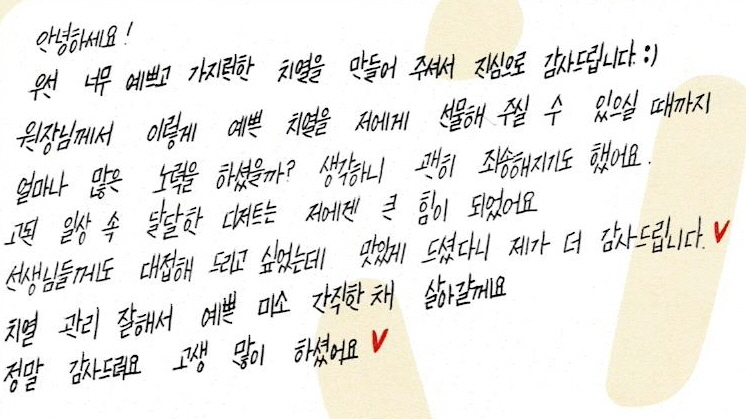 안녕하세요!
우선 너무 예쁘고 가지런한 치열을 만들어 주셔서 진심으로 감사드립니다:)
원장님께서 이렇게 예쁜 치열을 저에게 선물해 주실 수 있으실 때까지
얼마나 많은 노력을 하셨을까? 생각하니 괜히 죄송해지기도 했어요.
고된 일상 속 달달한 디저트는 저에겐 큰 힘이 되었어요
선생님들께도 대접해 드리고 싶었는데 맛있게 드셨다니 제가 더 감사드립니다.♥
치열 관리 잘해서 예쁜 미소 간직한 채 살아갈게요
정말 감사드려요 고생 많이 하셨어요♥